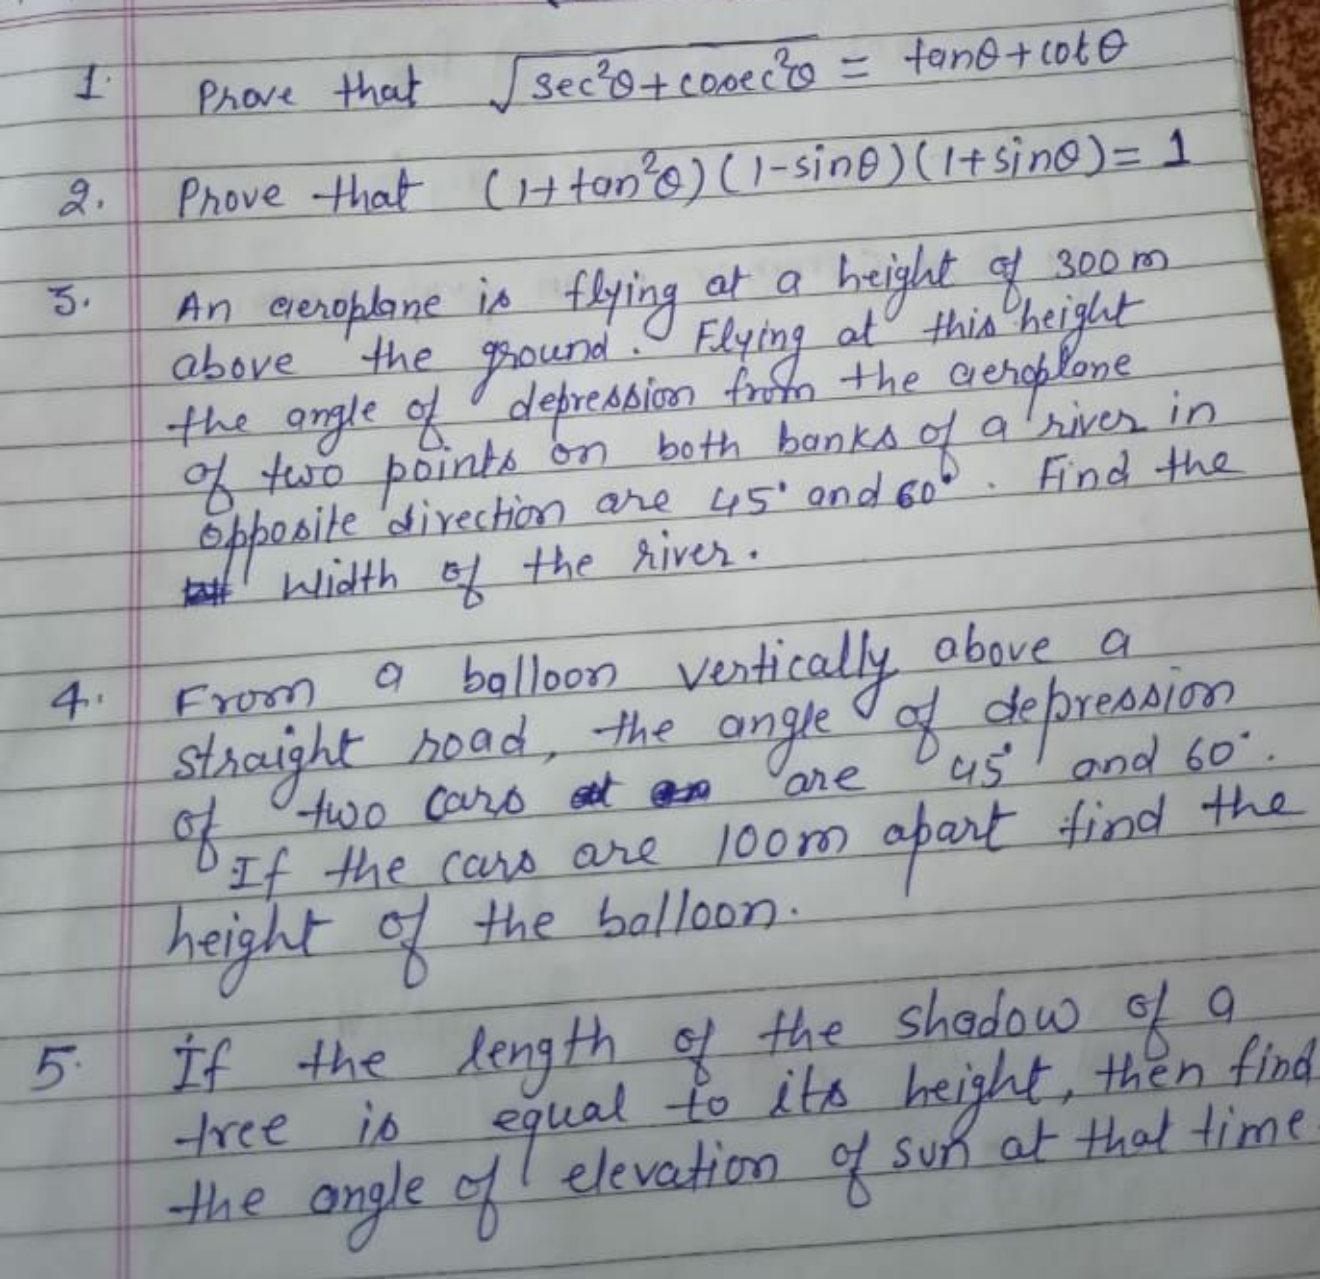 1. Prove that √sec²θ + cosec²θ = tanθ + cotθ
2. Prove that (1 + tan²θ) (1 - sinθ) (1 + sinθ) = 1
3. An aeroplane is flying at a height of 300 m
above the ground. Flying at this height
the angle of depression from the aeroplane
of two points on both banks of a river in
opposite direction are 45° and 60°. Find the
width of the river.
4. From a balloon vertically above a
straight road, the angle of depression
of two cars are 45° and 60°.
If the cars are 100m apart find the
height of the balloon.
5. If the length of the shadow of a
tree is equal to its height, then find
the angle of elevation of sun at that time.